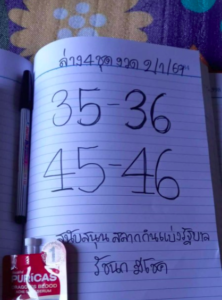 ล่าง 4 ชุด งวด 2/1/69
35-36
45-46
สนับสนุน สลากกินแบ่งรัฐบาล
รัชนก มีโชค
PURICAS
DRAGON'S BLOOD